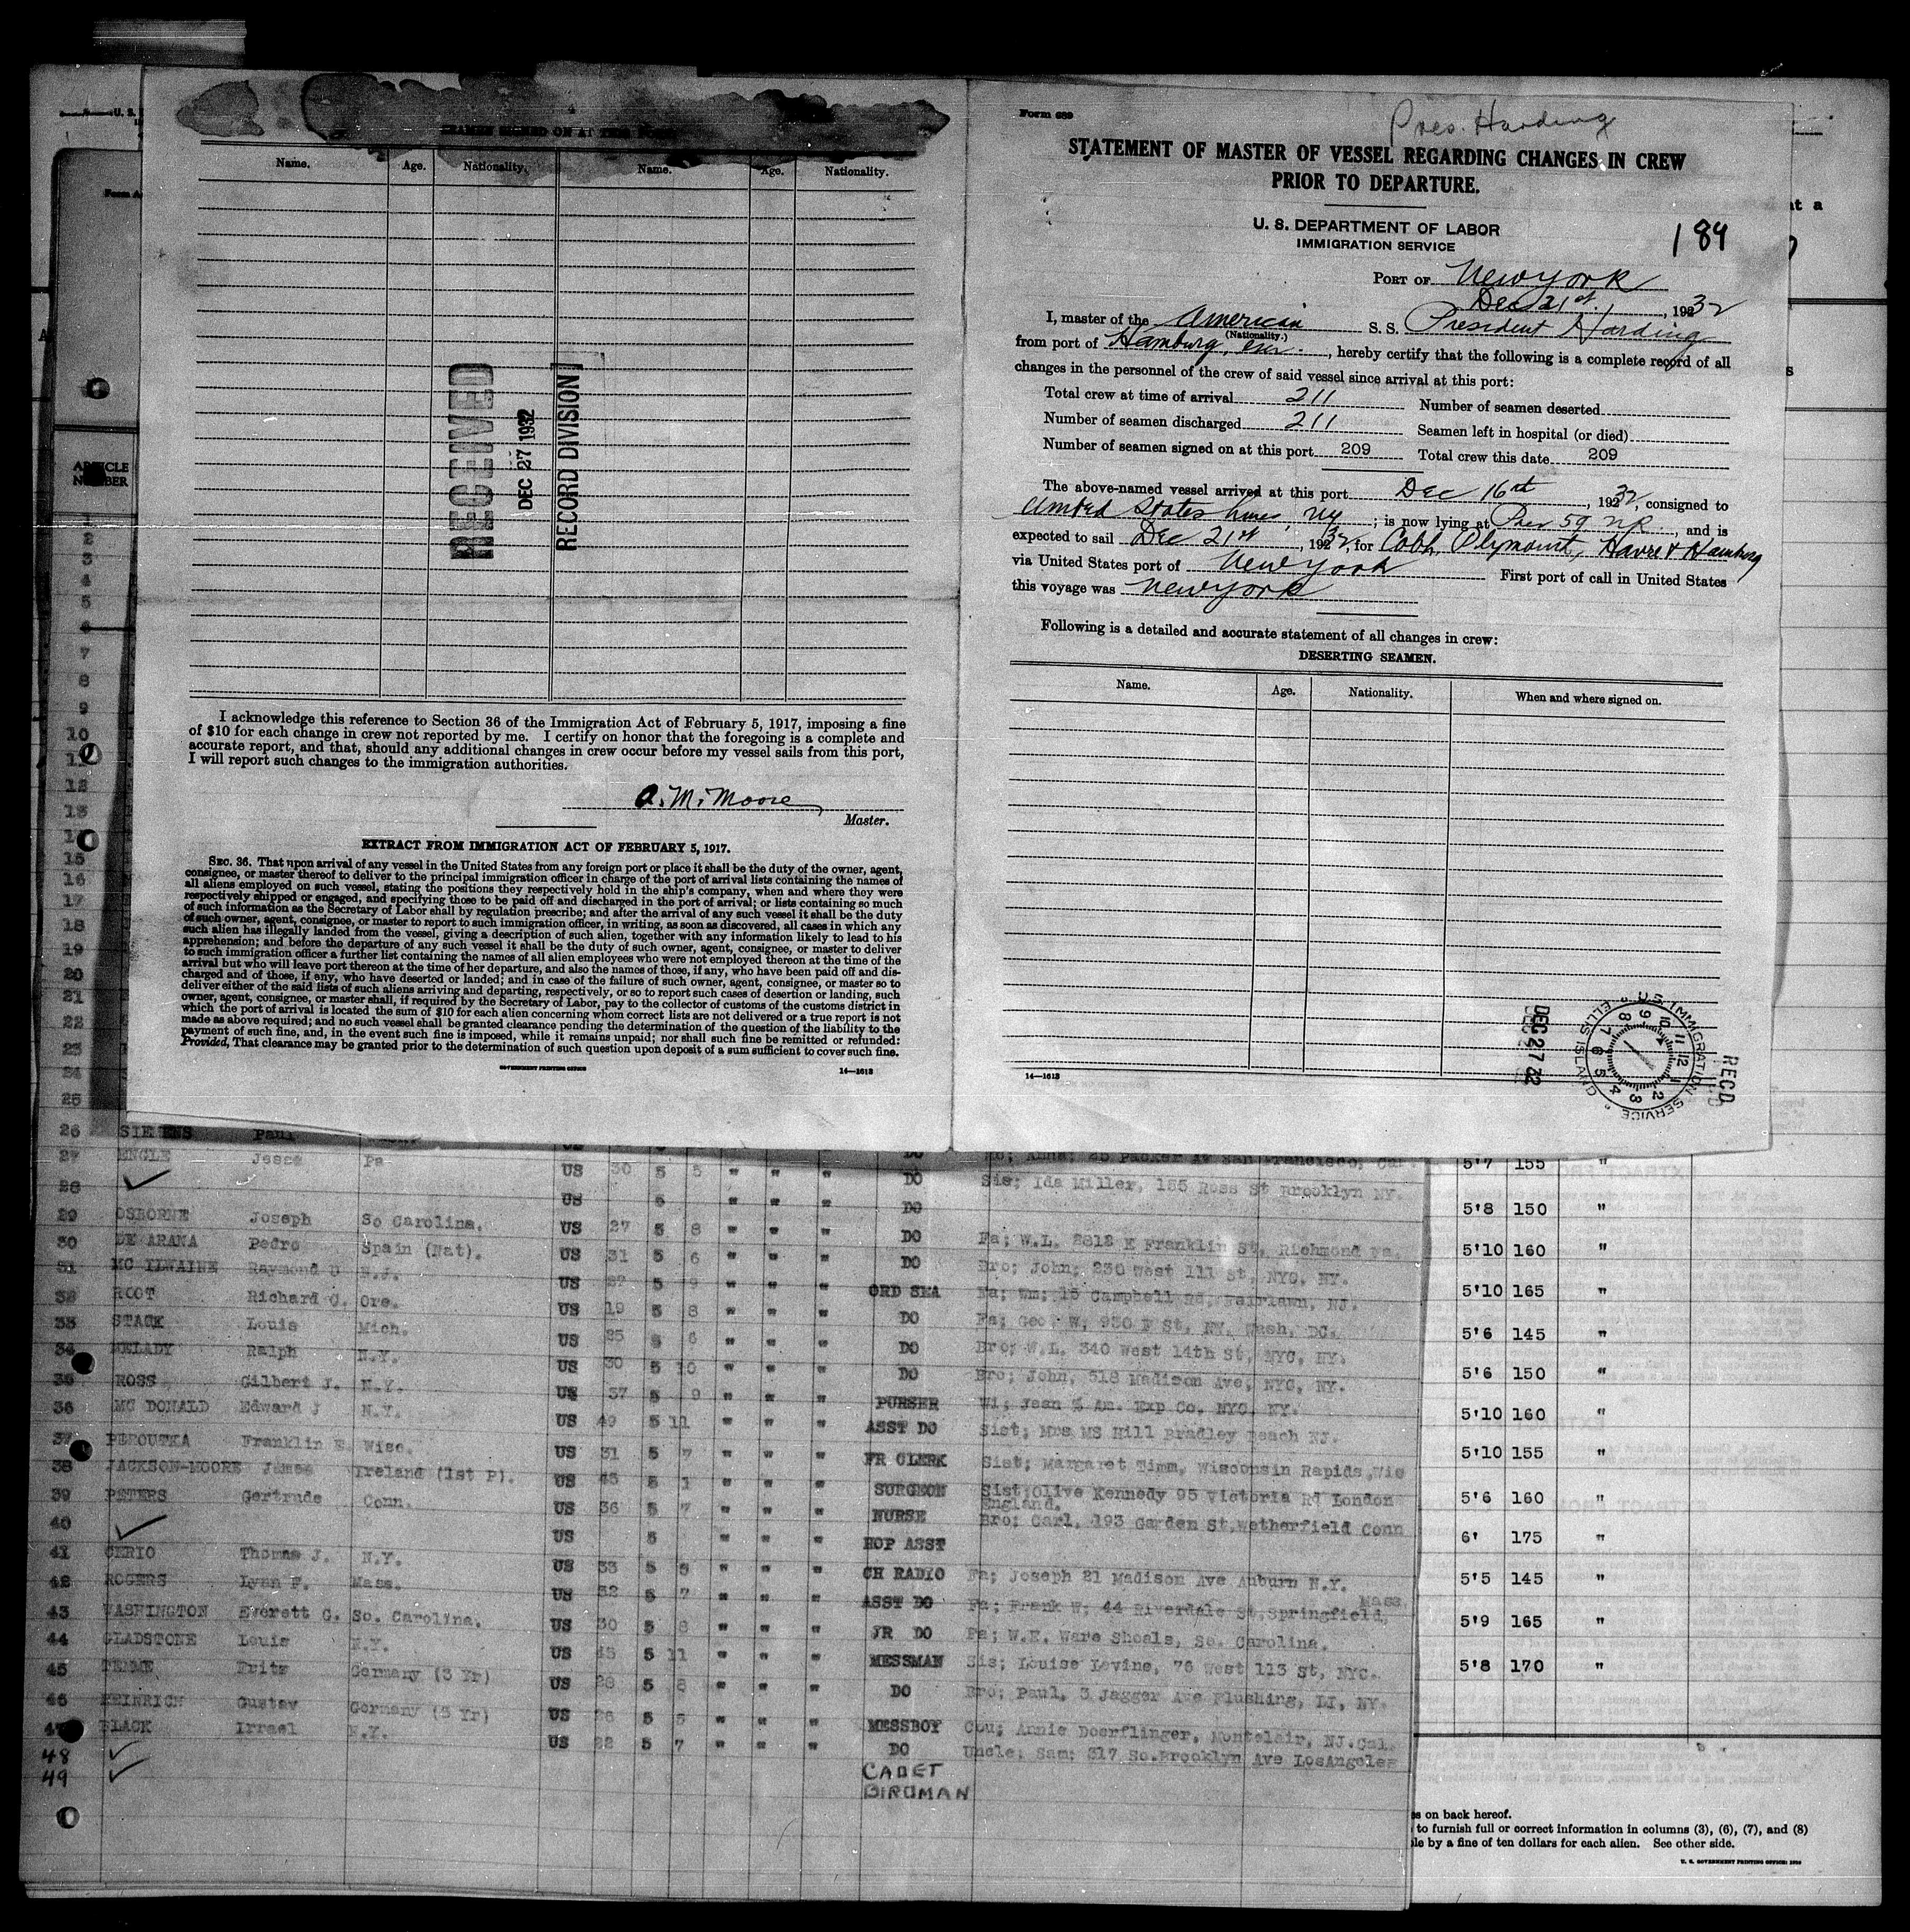 4
SEAMEN SIGNED ON AT THIS PORT
Name. Age. Nationality. Name. Age. Nationality.
RECEIVED
DEC 27 1932
RECORD DIVISION
I acknowledge this reference to Section 36 of the Immigration Act of February 5, 1917, imposing a fine
of $10 for each change in crew not reported by me. I certify on honor that the foregoing is a complete and
accurate report, and that, should any additional changes in crew occur before my vessel sails from this port,
I will report such changes to the immigration authorities.
A. M. Moore
Master.
EXTRACT FROM IMMIGRATION ACT OF FEBRUARY 5, 1917.
SEC. 36. That upon arrival of any vessel in the United States from any foreign port or place it shall be the duty of the owner, agent,
consignee, or master thereof to deliver to the principal immigration officer in charge of the port of arrival lists containing the names of
all aliens employed on such vessel, stating the positions they respectively hold in the ship's company, when and where they were
respectively shipped or engaged, and specifying those to be paid off and discharged in the port of arrival; or lists containing so much
of such information as the Secretary of Labor shall by regulation prescribe; and after the arrival of any such vessel it shall be the duty
of such owner, agent, consignee, or master to report to such immigration officer, in writing, as soon as discovered, all cases in which any
such alien has illegally landed from the vessel, giving a description of such alien, together with any information likely to lead to his
apprehension; and before the departure of any such vessel it shall be the duty of such owner, agent, consignee, or master to deliver
to such immigration officer a further list containing the names of all alien employees who were not employed thereon at the time of the
arrival but who will leave port thereon at the time of her departure, and also the names of those, if any, who have been paid off and dis-
charged and of those, if any, who have deserted or landed; and in case of the failure of such owner, agent, consignee, or master so to
deliver either of the said lists of such aliens arriving and departing, respectively, or so to report such cases of desertion or landing, such
owner, agent, consignee, or master shall, if required by the Secretary of Labor, pay to the collector of customs of the customs district in
which the port of arrival is located the sum of $10 for each alien concerning whom correct lists are not delivered or a true report is not
made as above required; and no such vessel shall be granted clearance pending the determination of the question of the liability to the
payment of such fine, and, in the event such fine is imposed, while it remains unpaid; nor shall such fine be remitted or refunded:
Provided, That clearance may be granted prior to the determination of such question upon deposit of a sum sufficient to cover such fine.
GOVERNMENT PRINTING OFFICE 14—1613
Form 689
Pres. Harding
STATEMENT OF MASTER OF VESSEL REGARDING CHANGES IN CREW
PRIOR TO DEPARTURE.
U. S. DEPARTMENT OF LABOR
IMMIGRATION SERVICE
184
PORT OF New York
Dec 21st, 1932
I, master of the American S. S. President Harding
(Nationality.)
from port of Hamburg, Ger., hereby certify that the following is a complete record of all
changes in the personnel of the crew of said vessel since arrival at this port:
Total crew at time of arrival 211 Number of seamen deserted
Number of seamen discharged 211 Seamen left in hospital (or died)
Number of seamen signed on at this port 209 Total crew this date 209
The above-named vessel arrived at this port Dec 16th, 1932, consigned to
United States Lines, NY; is now lying at Pier 59 NR, and is
expected to sail Dec 21st, 1932, for Cobh, Plymouth, Havre & Hamburg
via United States port of New York First port of call in United States
this voyage was New York
Following is a detailed and accurate statement of all changes in crew:
DESERTING SEAMEN.
Name. Age. Nationality. When and where signed on.
DEC 27 32
U.S. IMMIGRATION SERVICE ELLIS ISLAND
REC'D
14—1613
ARTICLE
NUMBER
26 SIEMENS Paul
27 ENGLE Jesse Pa US 30 5 5 " " " DO Sis; Ida Miller, 155 Ross St Brooklyn NY.
28 US 5 " " " DO
29 OSBORNE Joseph So Carolina. US 27 5 8 " " " DO Fa; W.L. 2818 E Franklin St, Richmond Va.
30 DE ARANA Pedro Spain (Nat). US 31 5 6 " " " DO Bro; John; 230 West 111 St, NYC, NY.
31 MC ILWAINE Raymond D N.J. US 27 5 9 " " " ORD SEA Fa; Wm; 15 Campbell Rd, Fairlawn, NJ.
32 ROOT Richard C. Ore. US 19 5 8 " " " DO Fa; Geo. W, 930 F St, NY. Wash, DC.
33 STACK Louis Mich. US 25 5 6 " " " DO Bro; W.L. 340 West 14th St, NYC, NY.
34 MELADY Ralph N.Y. US 30 5 10 " " " DO Bro; John, 518 Madison Ave, NYC, NY.
35 ROSS Gilbert J. N.Y. US 37 5 9 " " " PURSER Wi; Jean % Am. Exp Co. NYC. NY.
36 MC DONALD Edward J N.Y. US 49 5 11 " " " ASST DO Sist; Mrs MS Hill Bradley Beach NJ.
37 PEROUTKA Franklin E. Wisc. US 31 5 7 " " " FR CLERK Sist; Margaret Timm, Wisconsin Rapids, Wis
38 JACKSON-MOORE James Ireland (1st P). US 45 5 1 " " " SURGEON Sist; Olive Kennedy 95 Victoria Rd London
England.
39 PETERS Gertrude Conn. US 36 5 7 " " " NURSE Bro; Carl, 193 Garden St, Wetherfield Conn
40 US 5 " " " HOP ASST
41 CERIO Thomas J. N.Y. US 33 5 5 " " " CH RADIO Fa; Joseph 21 Madison Ave Auburn N.Y.
42 ROGERS Lynn F. Mass. US 32 5 7 " " " ASST DO Fa; Frank W; 44 Riverdale St, Springfield, Mass.
43 WASHINGTON Everett G. So. Carolina. US 30 5 8 " " " JR DO Fa; W.E. Ware Shoals, So. Carolina.
44 GLADSTONE Louis N.Y. US 45 5 11 " " " MESSMAN Sis; Louise Levine, 76 West 113 St, NYC.
45 TEMME Fritz Germany (3 Yr) US 28 5 8 " " " DO Bro; Paul, 3 Jagger Ave Flushing, LI, NY.
46 HEINRICH Gustav Germany (5 Yr) US 26 5 5 " " " MESSBOY Cou; Annie Doerflinger, Montclair, NJ.
47 BLACK Irrael N.Y. US 22 5 7 " " " DO Uncle; Sam; 317 So. Brooklyn Ave LosAngeles Cal.
48 CADET
49 BIRDMAN
5'7 155 "
5'8 150 "
5'10 160 "
5'10 165 "
5'6 145 "
5'6 150 "
5'10 160 "
5'10 155 "
5'6 160 "
6' 175 "
5'5 145 "
5'9 165 "
5'8 170 "
on back hereof.
to furnish full or correct information in columns (3), (6), (7), and (8)
by a fine of ten dollars for each alien. See other side.
U. S. GOVERNMENT PRINTING OFFICE